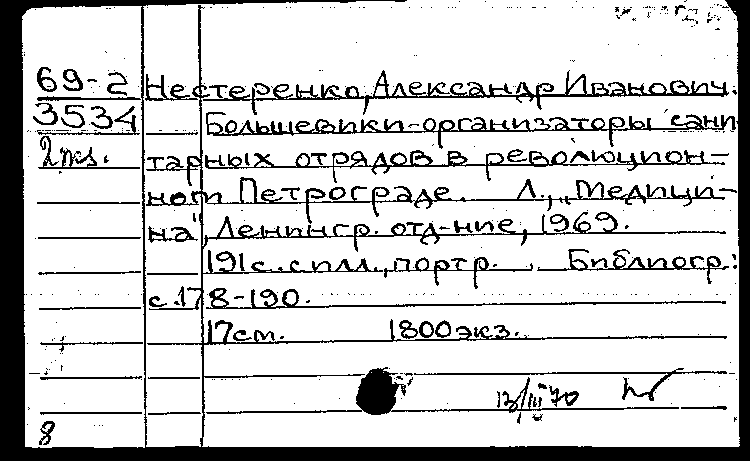 69-2 Нестеренко, Александр Иванович.
3534 Большевики-организаторы сани-
2 экз. тарных отрядов в революцион-
ном Петрограде. Л., „Медици-
на", Ленингр. отд-ние, 1969.
191 с. с илл., портр. Библиогр.:
с. 178-190.
17 см. 1800 экз.
13/III 70
8